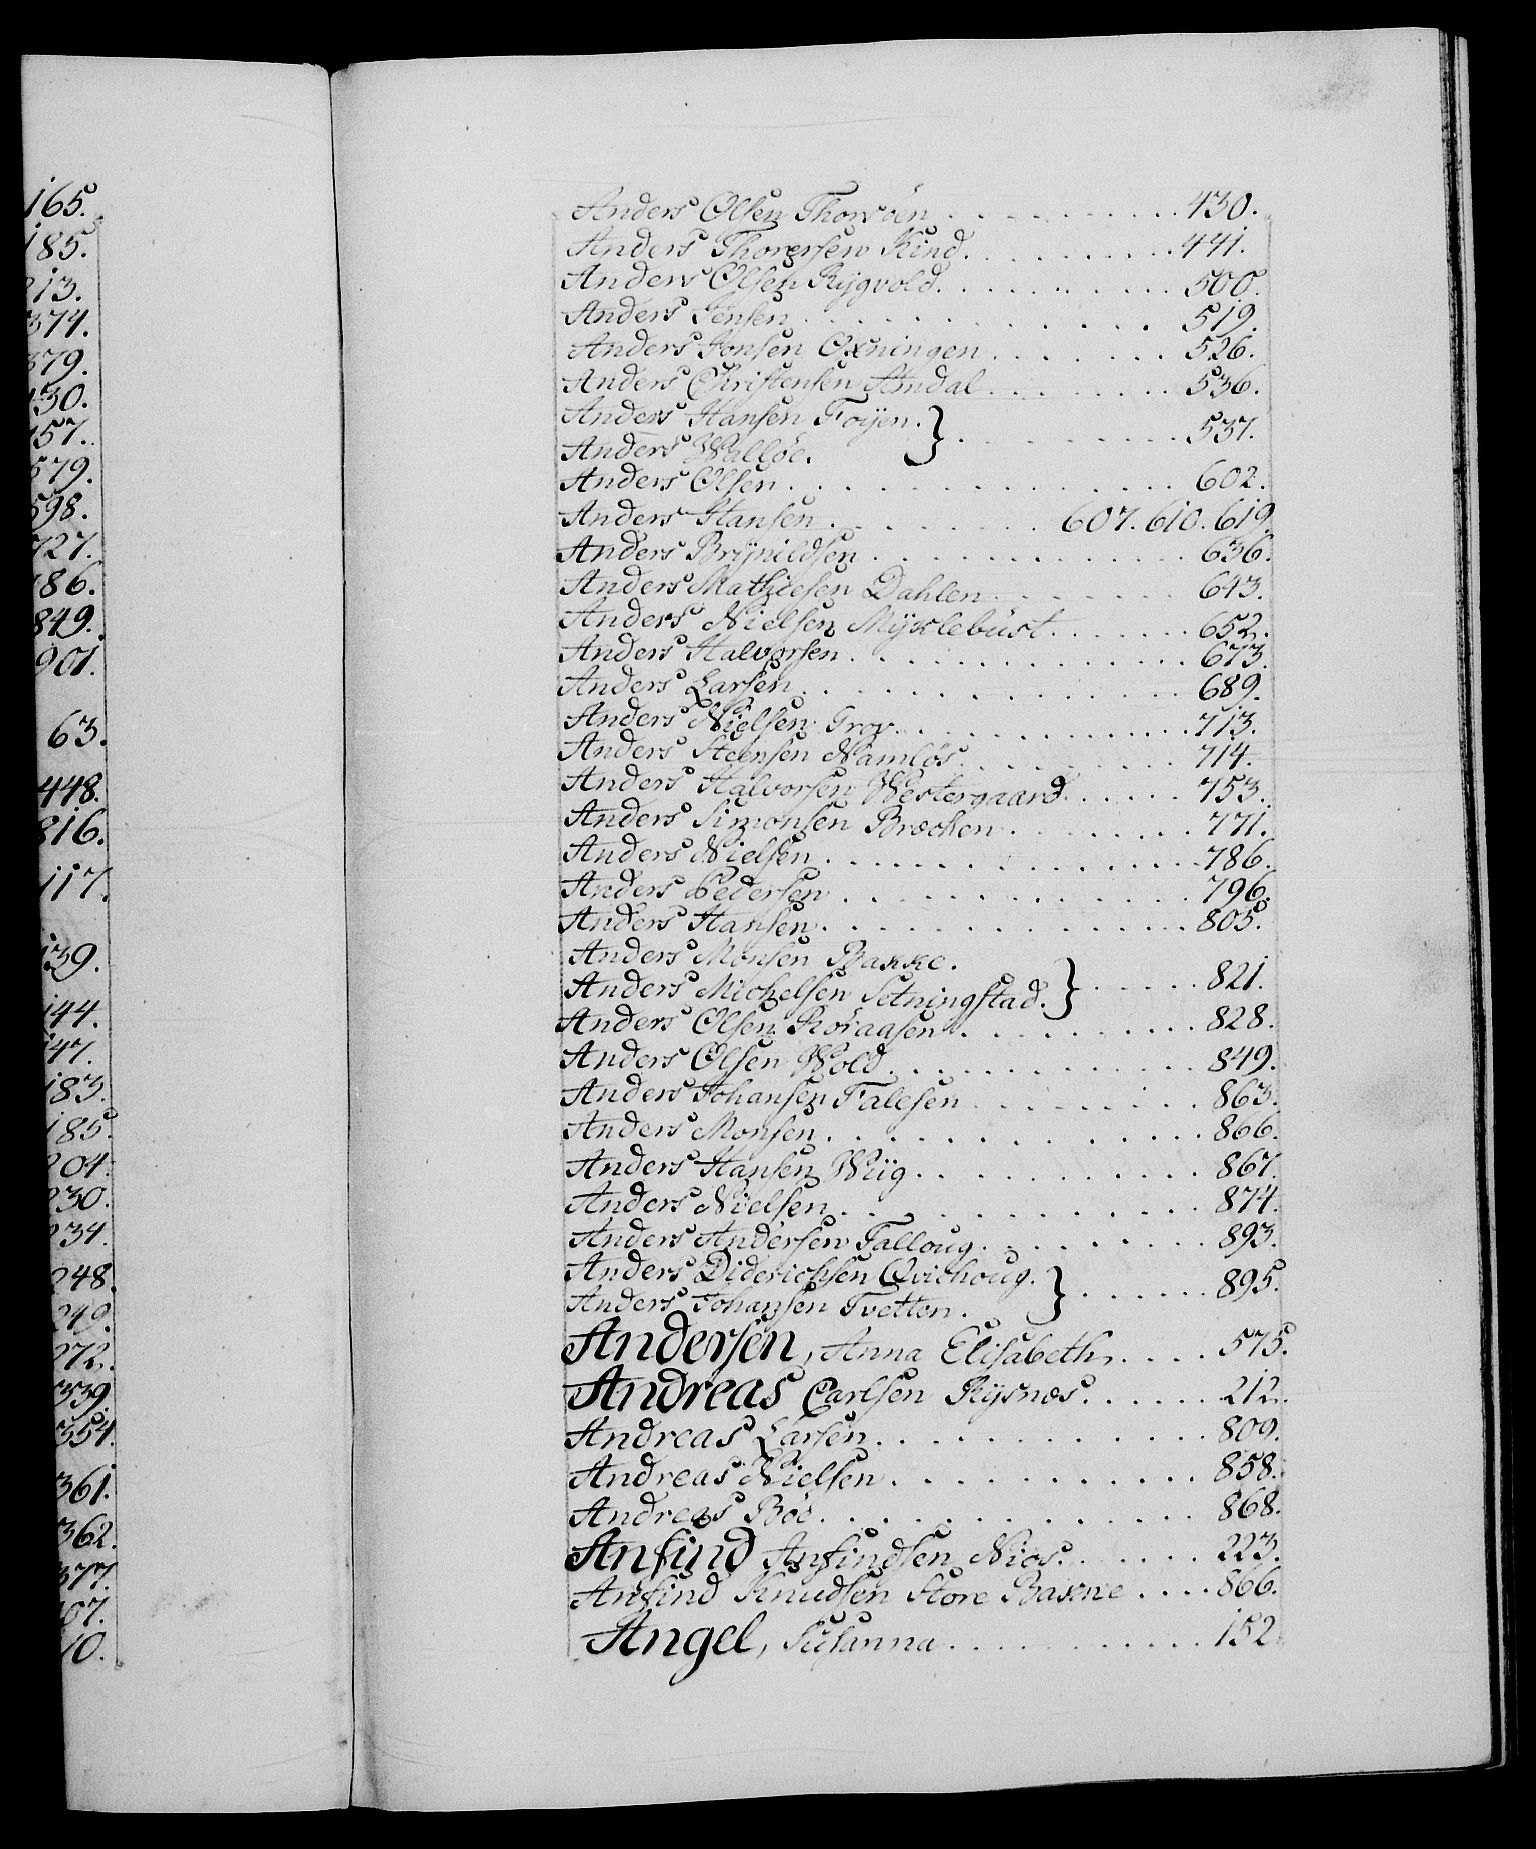 165.
185.
213.
374.
379.
430.
457.
579.
598.
727.
786.
849.
901.
63.
448.
816.
117.
139.
144.
147.
183.
185.
204.
230.
234.
248.
249.
272.
339.
354.
361.
362.
377.
407.
10.
Anders Olsen Thorsöen . . . . . . . . . . 430.
Anders Thorersen Kind . . . . . . . . . . 441.
Anders Olsen Rygvold . . . . . . . . . . 500.
Anders Jensen . . . . . . . . . . 519.
Anders Jonsen Oxningen . . . . . . . . 526.
Anders Christensen Amdal . . . . . . . . 536.
Anders Hansen Foÿen. } . . . . . . . . 537.
Anders Walløe.
Anders Olsen . . . . . . . . . . 602.
Anders Hansen . . . . . . . . 607. 610. 619.
Anders Brÿnildsen . . . . . . . . . . 636.
Anders Mathiesen Dahlen . . . . . . . 643.
Anders Nielsen Mÿklebust . . . . . . . 652.
Anders Halvorsen . . . . . . . . . . 673.
Anders Larsen . . . . . . . . . . 689.
Anders Nielsen Troy . . . . . . . . . . 713.
Anders Steensen Namløs . . . . . . . . 714.
Anders Halvorsen Westergaard . . . . . . 753.
Anders Simonsen Bræcken . . . . . . . . 771.
Anders Nielsen . . . . . . . . . . 786.
Anders Pedersen . . . . . . . . . . 796.
Anders Hansen . . . . . . . . . . 805.
Anders Monsen Bakke. } . . . . . . 821.
Anders Michelsen Setningstad.
Anders Olsen Roraasen . . . . . . . . 828.
Anders Olsen Wold . . . . . . . . . . 849.
Anders Johansen Falesen . . . . . . . . 863.
Anders Monsen . . . . . . . . . . 866.
Anders Hansen Wiig . . . . . . . . . . 867.
Anders Nielsen . . . . . . . . . . 874.
Anders Andersen Falloug . . . . . . . . 893.
Anders Diderichsen Qvichoug. } . . . . . . 895.
Anders Johansen Tvetten.
Andersen, Anna Elisabeth . . . . 575.
Andreas Carlsen Rysnæs . . . . . . 212.
Andreas Larsen . . . . . . . . . . 809.
Andreas Nielsen . . . . . . . . . . 858.
Andreas Böe . . . . . . . . . . 868.
Anfind Anfindsen Nios . . . . . . 223.
Anfind Knudsen Store Bakne . . . . 866.
Angel, Susanna . . . . . . . . . . 152.